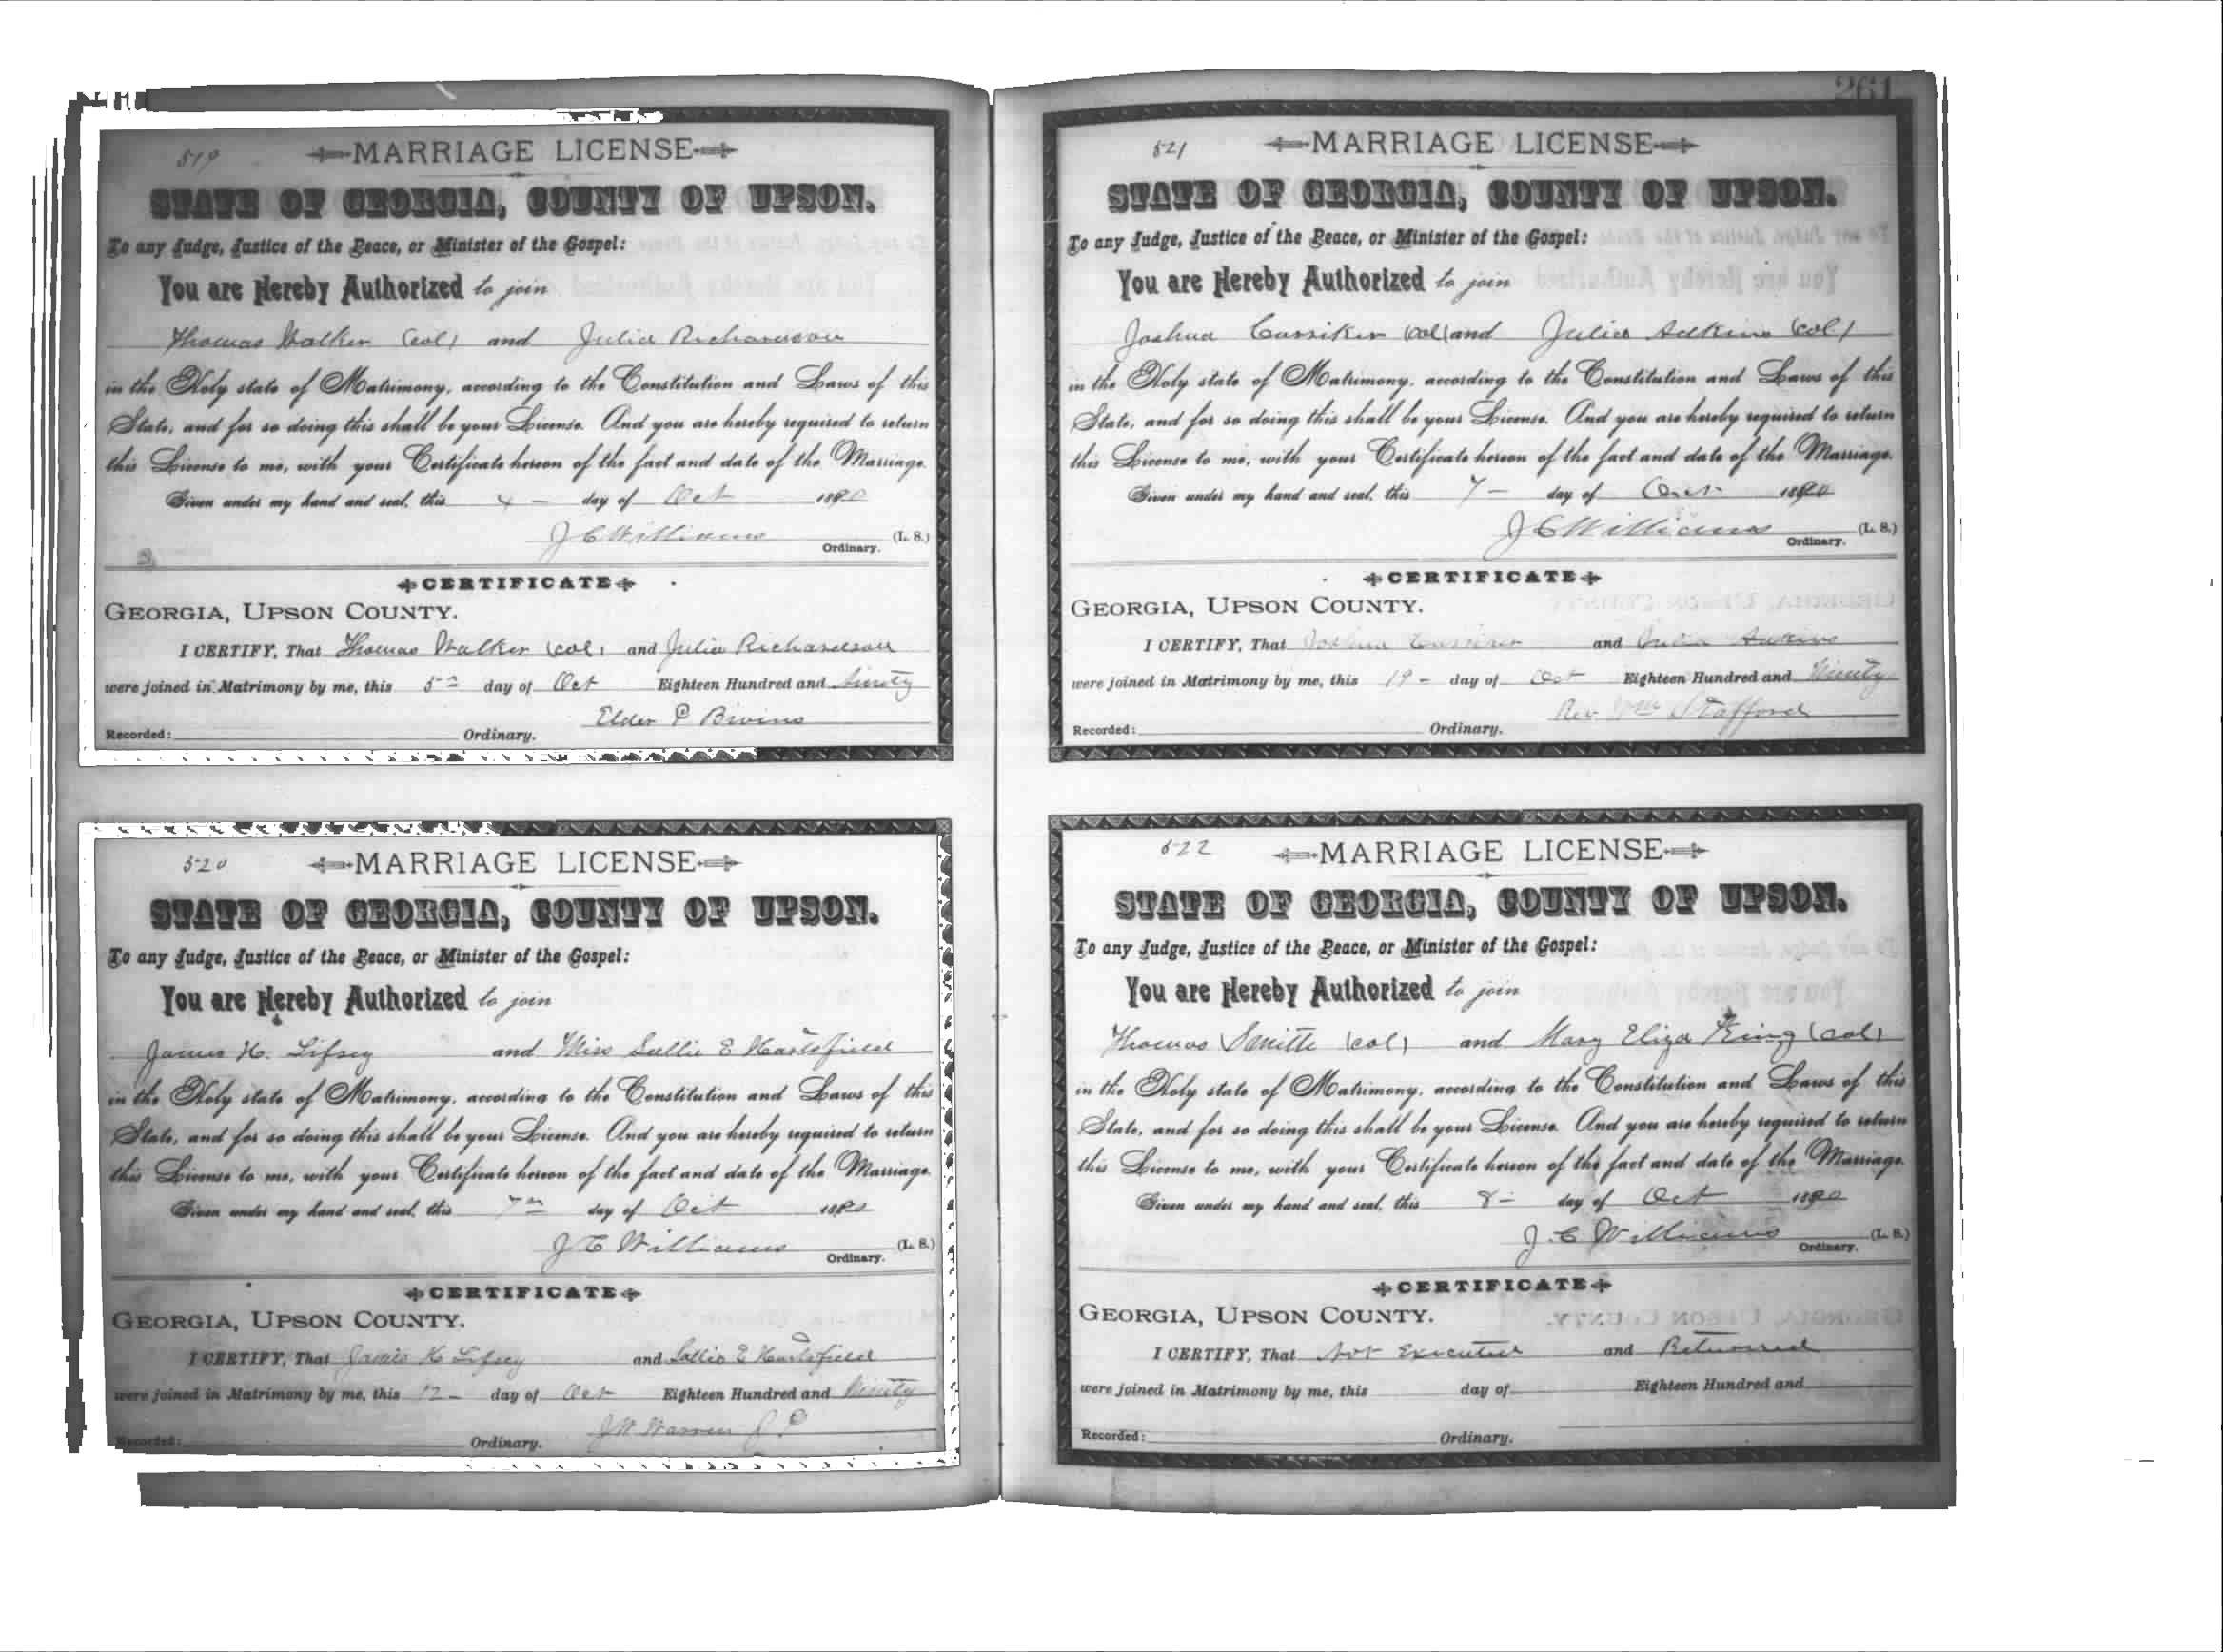 261
519
MARRIAGE LICENSE
STATE OF GEORGIA, COUNTY OF UPSON.
To any Judge, Justice of the Peace, or Minister of the Gospel:
You are Hereby Authorized to join
Thomas Walker (col) and Julia Richardson
in the Holy state of Matrimony, according to the Constitution and Laws of this
State, and for so doing this shall be your License. And you are hereby required to return
this License to me, with your Certificate hereon of the fact and date of the Marriage.
Given under my hand and seal, this 4 - day of Oct 1890
J C Williams (L. S.)
Ordinary.
CERTIFICATE
GEORGIA, UPSON COUNTY.
I CERTIFY, That Thomas Walker (col) and Julia Richardson
were joined in Matrimony by me, this 5th day of Oct Eighteen Hundred and Ninety
Elder P Bivins
Recorded: Ordinary.
520
MARRIAGE LICENSE
STATE OF GEORGIA, COUNTY OF UPSON.
To any Judge, Justice of the Peace, or Minister of the Gospel:
You are Hereby Authorized to join
James H. Lifsey and Miss Sallie E Hartsfield
in the Holy state of Matrimony, according to the Constitution and Laws of this
State, and for so doing this shall be your License. And you are hereby required to return
this License to me, with your Certificate hereon of the fact and date of the Marriage.
Given under my hand and seal, this 7th day of Oct 1890
J C Williams (L. S.)
Ordinary.
CERTIFICATE
GEORGIA, UPSON COUNTY.
I CERTIFY, That James H Lifsey and Sallie E Hartsfield
were joined in Matrimony by me, this 12 - day of Oct Eighteen Hundred and Ninety
J W Warren J P
Recorded: Ordinary.
521
MARRIAGE LICENSE
STATE OF GEORGIA, COUNTY OF UPSON.
To any Judge, Justice of the Peace, or Minister of the Gospel:
You are Hereby Authorized to join
Joshua (col) and Julia Adkins (col)
in the Holy state of Matrimony, according to the Constitution and Laws of this
State, and for so doing this shall be your License. And you are hereby required to return
this License to me, with your Certificate hereon of the fact and date of the Marriage.
Given under my hand and seal, this 7 - day of Oct 1890
J C Williams (L. S.)
Ordinary.
CERTIFICATE
GEORGIA, UPSON COUNTY.
I CERTIFY, That Joshua and Julia Adkins
were joined in Matrimony by me, this 19 - day of Oct Eighteen Hundred and Ninety
Rev Wm Stafford
Recorded: Ordinary.
522
MARRIAGE LICENSE
STATE OF GEORGIA, COUNTY OF UPSON.
To any Judge, Justice of the Peace, or Minister of the Gospel:
You are Hereby Authorized to join
Thomas Smith (col) and Mary Eliza King (col)
in the Holy state of Matrimony, according to the Constitution and Laws of this
State, and for so doing this shall be your License. And you are hereby required to return
this License to me, with your Certificate hereon of the fact and date of the Marriage.
Given under my hand and seal, this 8 - day of Oct 1890
J. C Williams (L. S.)
Ordinary.
CERTIFICATE
GEORGIA, UPSON COUNTY.
I CERTIFY, That Not Executed and Returned
were joined in Matrimony by me, this day of Eighteen Hundred and
Recorded: Ordinary.